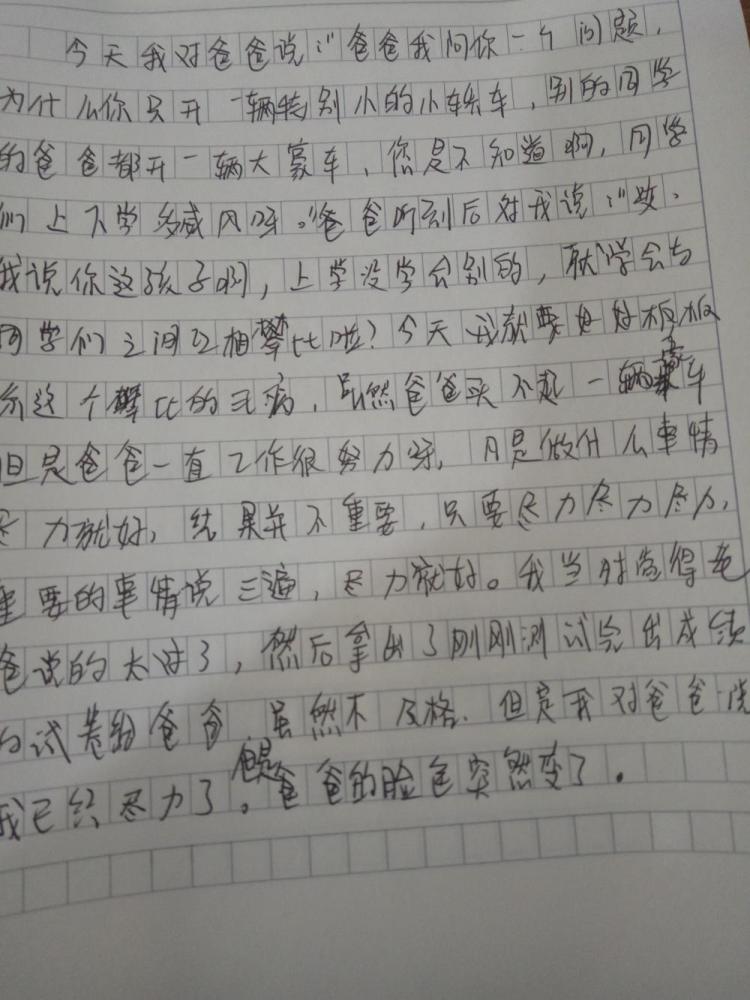 今天我对爸爸说:“爸爸我问你一个问题,
为什么你只开一辆特别小的小轿车,别的同学
的爸爸都开一辆大豪车,您是不知道啊,同学
们上下学多威风呀。”爸爸听到后对我说:“哎.
我说你这孩子啊,上学没学会别的,就学会与
同学们之间互相攀比啦?今天我就要好好板板
你这个攀比的毛病,虽然爸爸买不起一辆豪车
但是爸爸一直工作很努力呀,凡是做什么事情
尽力就好,结果并不重要,只要尽力尽力尽力,
重要的事情说三遍,尽力就好。我当时觉得爸
爸说的太对了,然后拿出了刚刚测试完出成绩
的试卷给爸爸,虽然不及格.但是我对爸爸说
我已经尽力了。但是爸爸的脸色突然变了。